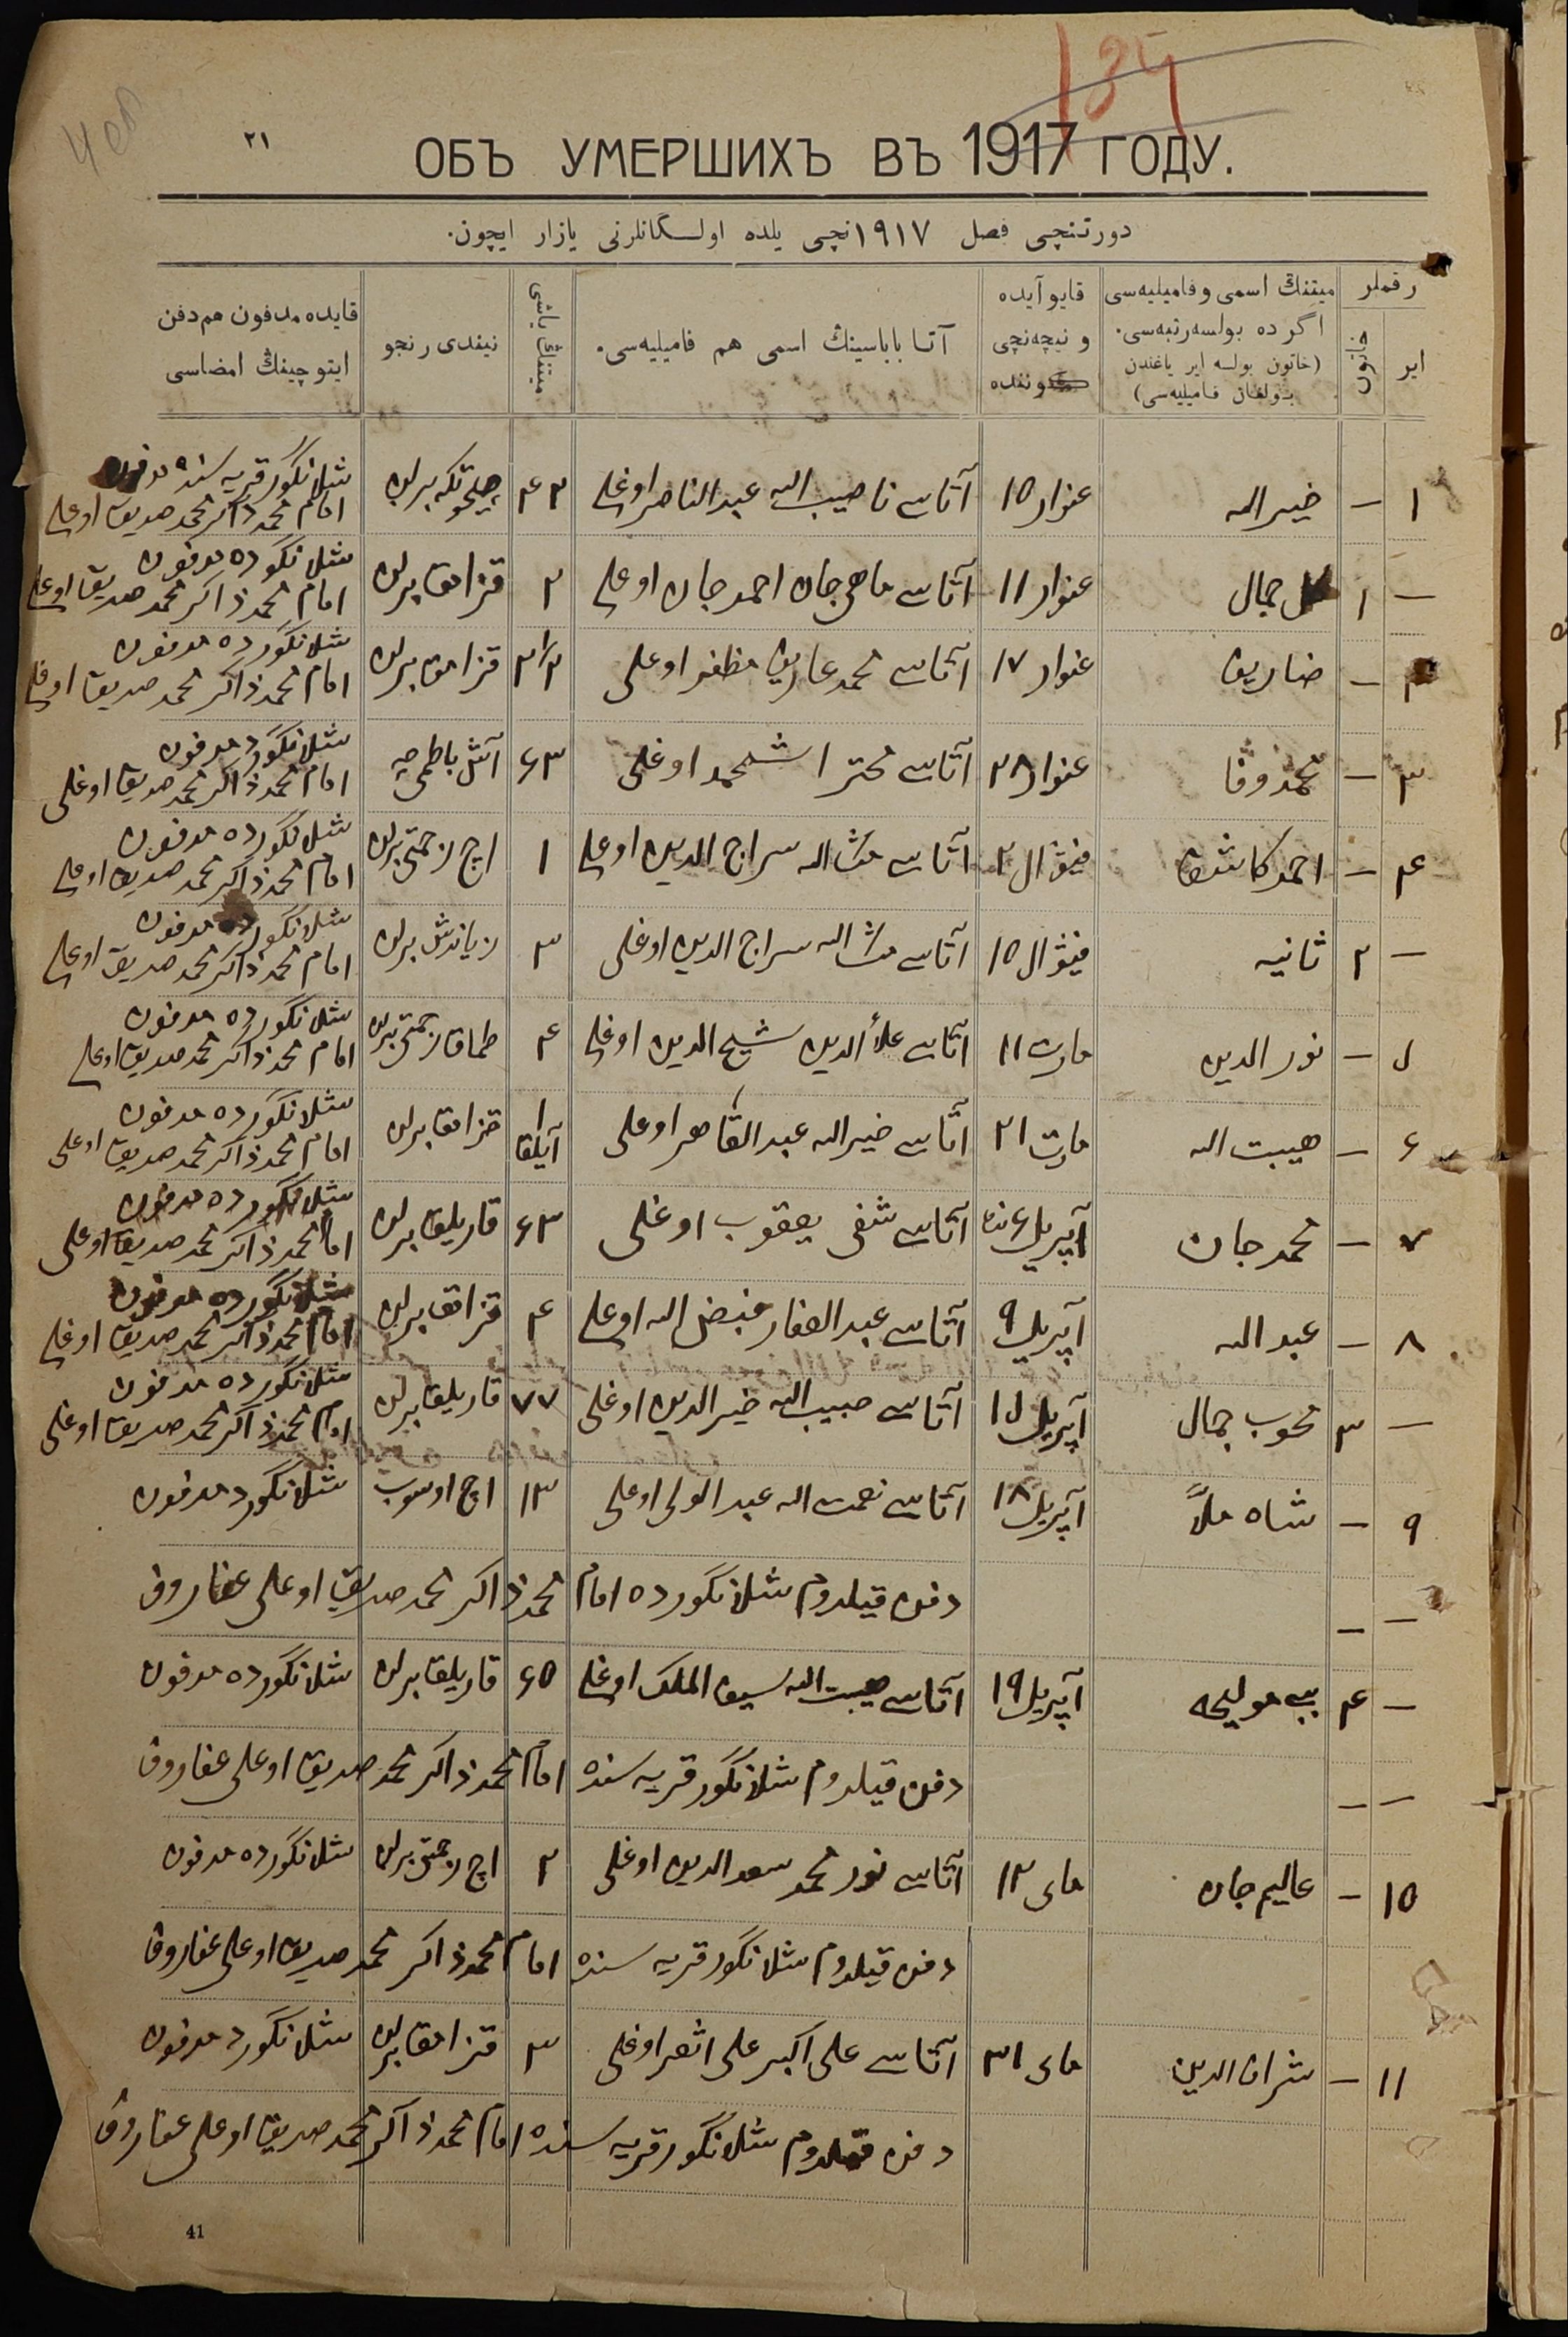 184
٢١
ОБЪ УМЕРШИХЪ ВЪ 1917 ГОДУ.
دورتنچی فصل ١٩١٧نچی یلده اولـگانلرنی یازار ایچون.
رقملر
ایر
خاتون
میتنڭ اسمی وفامیلیه‌سی
اگرده بولسه‌رتبه‌سی.
(خاتون بولسه ایر یاغندن
بولغان فامیلیه‌سی)
قایو آیده
و نیچه‌نچی
کونده
آتا باباسینڭ اسمی هم فامیلیه‌سی.
میتنڭ یاشی
نیندی رنجو
قایده مدفون هم‌دفن
ایتوچینڭ امضاسی
١ – خیرالله غنوار ١٥ آتاسے ناصیب الله عبدالناصر اوغلی ٤٢ برلن شلانگور قریه سنده مدفون
امام محمد ذاکر محمد صدیق اوغلی
– ١ جمال غنوار ١١ آتاسے ماهی جان احمد جان اوغلی ٢ قزامق برلن شلانگورده مدفون
امام محمد ذاکر محمد صدیق اوغلی
– غنوار ١٧ آتاسے محمد عاریف مظفر اوغلی قزامق برلن شلانگورده مدفون
امام محمد ذاکر محمد صدیق اوغلی
٣ – محمد وفا غنوار ٢٨ آتاسے اوغلی ٦٣ شلانگورد مدفون
امام محمد ذاکر محمد صدیق اوغلی
٤ – احمد کاشف فیوْال ٢ آتاسے سراج الدین اوغلی ١ اچ زحمتی برلن شلانگورده مدفون
امام محمد ذاکر محمد صدیق اوغلی
– ٢ ثانیه فیوْال ١٥ آتاسے سراج الدین اوغلی ٣ برلن شلانگورده مدفون
امام محمد ذاکر محمد صدیق اوغلی
٥ – نور الدین مارت ١١ آتاسے علأالدین شیخ الدین اوغلی ٤ طماق زحمتی برلن شلانگورده مدفون
امام محمد ذاکر محمد صدیق اوغلی
٦ – هیبت الله مارت ٢١ آتاسے خیرالله عبدالقاهر اوغلی ١ آیلق قزامق برلن شلانگورده مدفون
امام محمد ذاکر محمد صدیق اوغلی
٧ – محمد جان آپریل ٦نده آتاسے شفی یعقوب اوغلی ٦٣ قاریلق برلن شلانگورده مدفون
امام محمد ذاکر محمد صدیق اوغلی
٨ – عبدالله آپریل ٩ آتاسے عبدالغفار فیض الله اوغلی ٤ قزامق برلن شلانگورده مدفون
امام محمد ذاکر محمد صدیق اوغلی
– ٣ محوب جمال آپریل ١٥ آتاسے حبیب الله خیرالدین اوغلی ٧٧ قاریلق برلن شلانگورده مدفون
امام محمد ذاکر محمد صدیق اوغلی
٩ – شاه ملاّ آپریل ١٨ آتاسے نعمت الله عبدالولی اوغلی ١٣ شلانگورد مدفون
– – دفن قیلدوم شلانگورده امام محمد ذاکر محمد صدیق اوغلی غفاروف
– ٤ آپریل ١٩ آتاسے هیبت الله سیف الملک اوغلی ٦٥ قاریلق برلن شلانگورده مدفون
– – دفن قیلدوم شلانگور قریه سنده امام محمد ذاکر محمد صدیق اوغلی غفاروف
١٥ – عالیم جان مای ١٢ آتاسے نور محمد سعدالدین اوغلی ٢ اچ زحمتی برلن شلانگورده مدفون
دفن قیلدوم شلانگور قریه سنده امام محمد ذاکر محمد صدیق اوغلی غفاروف
١١ – شراف الدین مای ٣١ آتاسے علی اکبر علی اوغلی ٣ قزامق برلن شلانگورد مدفون
دفن قیلدوم شلانگور قریه سنده امام محمد ذاکر محمد صدیق اوغلی غفاروف
41